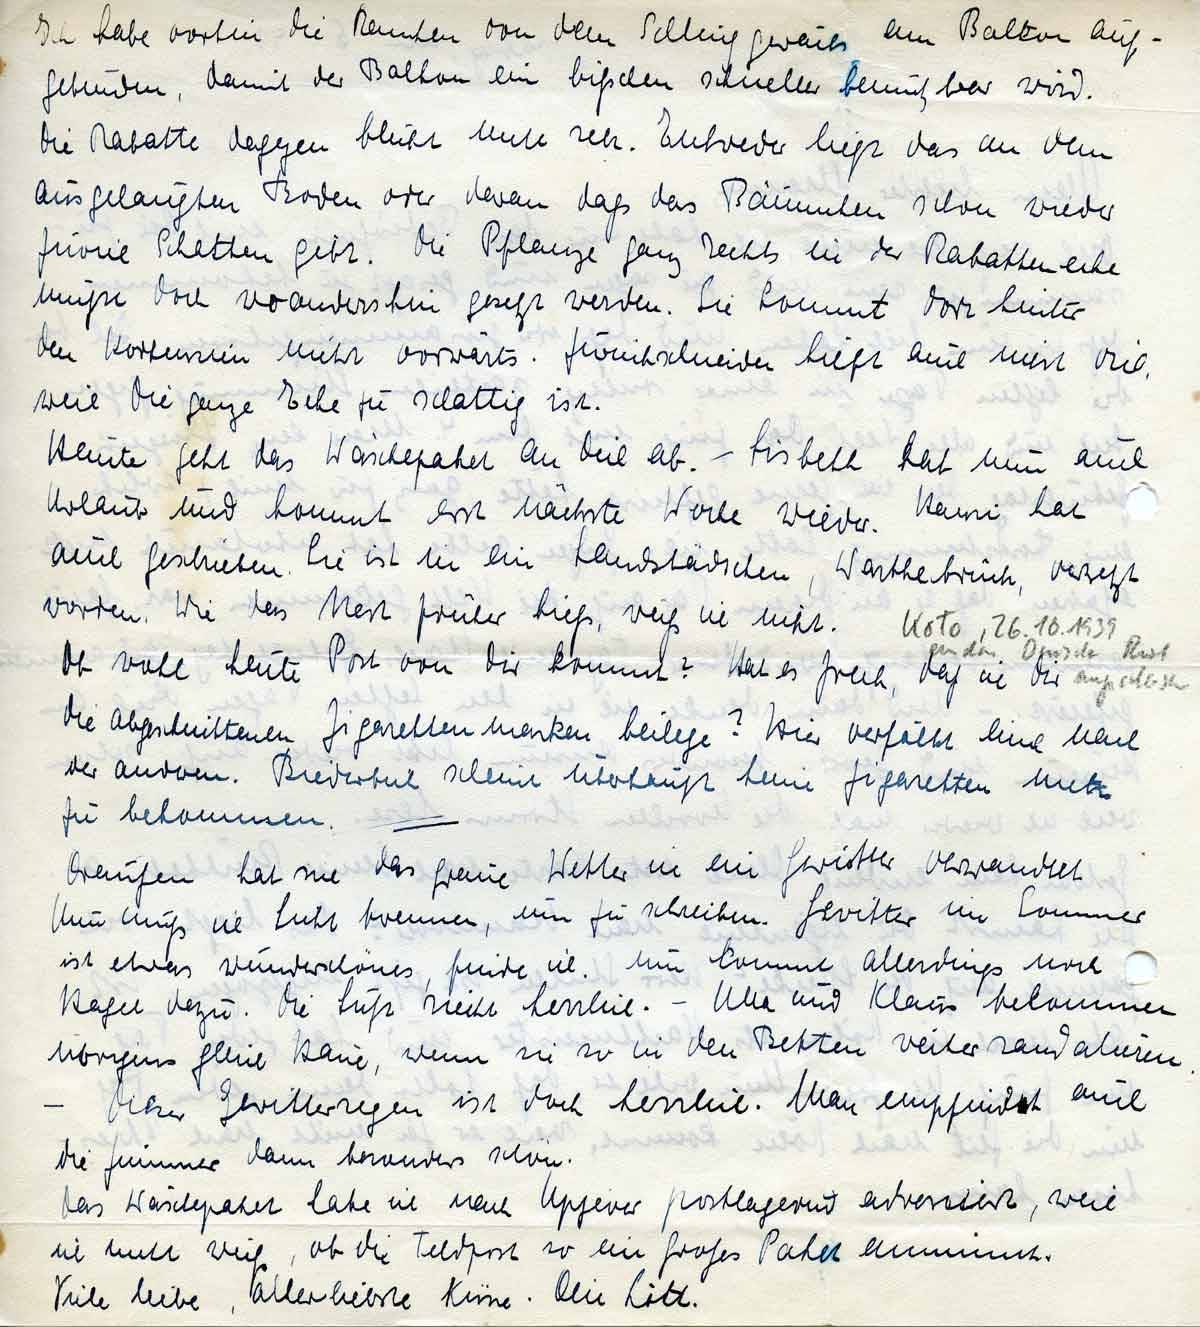 Ich habe vorhin die Ranken von dem Schlinggewächs am Balkon auf-
gebunden, damit der Balkon ein bißchen schneller benutzbar wird.
Die Rabatte dagegen blüht nicht sehr. Entweder liegt das an dem
ausgelaugten Boden oder daran daß das Bäumchen schon wieder
zuviel Schatten gibt. Die Pflanze ganz rechts in der Rabattenecke
müßte doch woandershin gesetzt werden. Sie kommt dort hinter
den Hortensien nicht vorwärts. Zurückschneiden hilft auch nicht viel,
weil die ganze Ecke zu schattig ist.
Heute geht das Wäschepaket an Dich ab. – Lisbeth hat nun auch
Urlaub und kommt erst nächste Woche wieder. Hanni hat
auch geschrieben. Sie ist in ein Landstädtchen, Warthebrück, versetzt
worden. Wie das Nest früher hieß, weiß sie nicht. Koło, 26.10.1939
an das Deutsche
Ob wohl heute Post von Dir kommt? Hat es Zweck, daß ich Dir
die abgeschnittenen Zigarettenmarken beilege? Hier verfällt eine nach
der anderen. Biederbul scheint überhaupt keine Zigaretten mehr
zu bekommen.
Draußen hat sich das graue Wetter in ein Gewitter verwandelt
Nun muß ich Licht brennen, um zu schreiben. Gewitter im Sommer
ist etwas wunderschönes, finde ich. Nun kommt allerdings noch
Hagel dazu. Die Luft riecht herrlich. – Ulla und Klaus bekommen
übrigens gleich Haue, wenn sie so in den Betten weiter randalieren.
– Dieser Gewitterregen ist doch herrlich. Man empfindet auch
die Zimmer dann besonders schön.
Das Wäschepaket habe ich nach Upjever postlagernd adressiert, weil
ich nicht weiß, ob die Feldpost so ein großes Paket annimmt.
Viele liebe, allerliebste Küsse. Dein Lott.